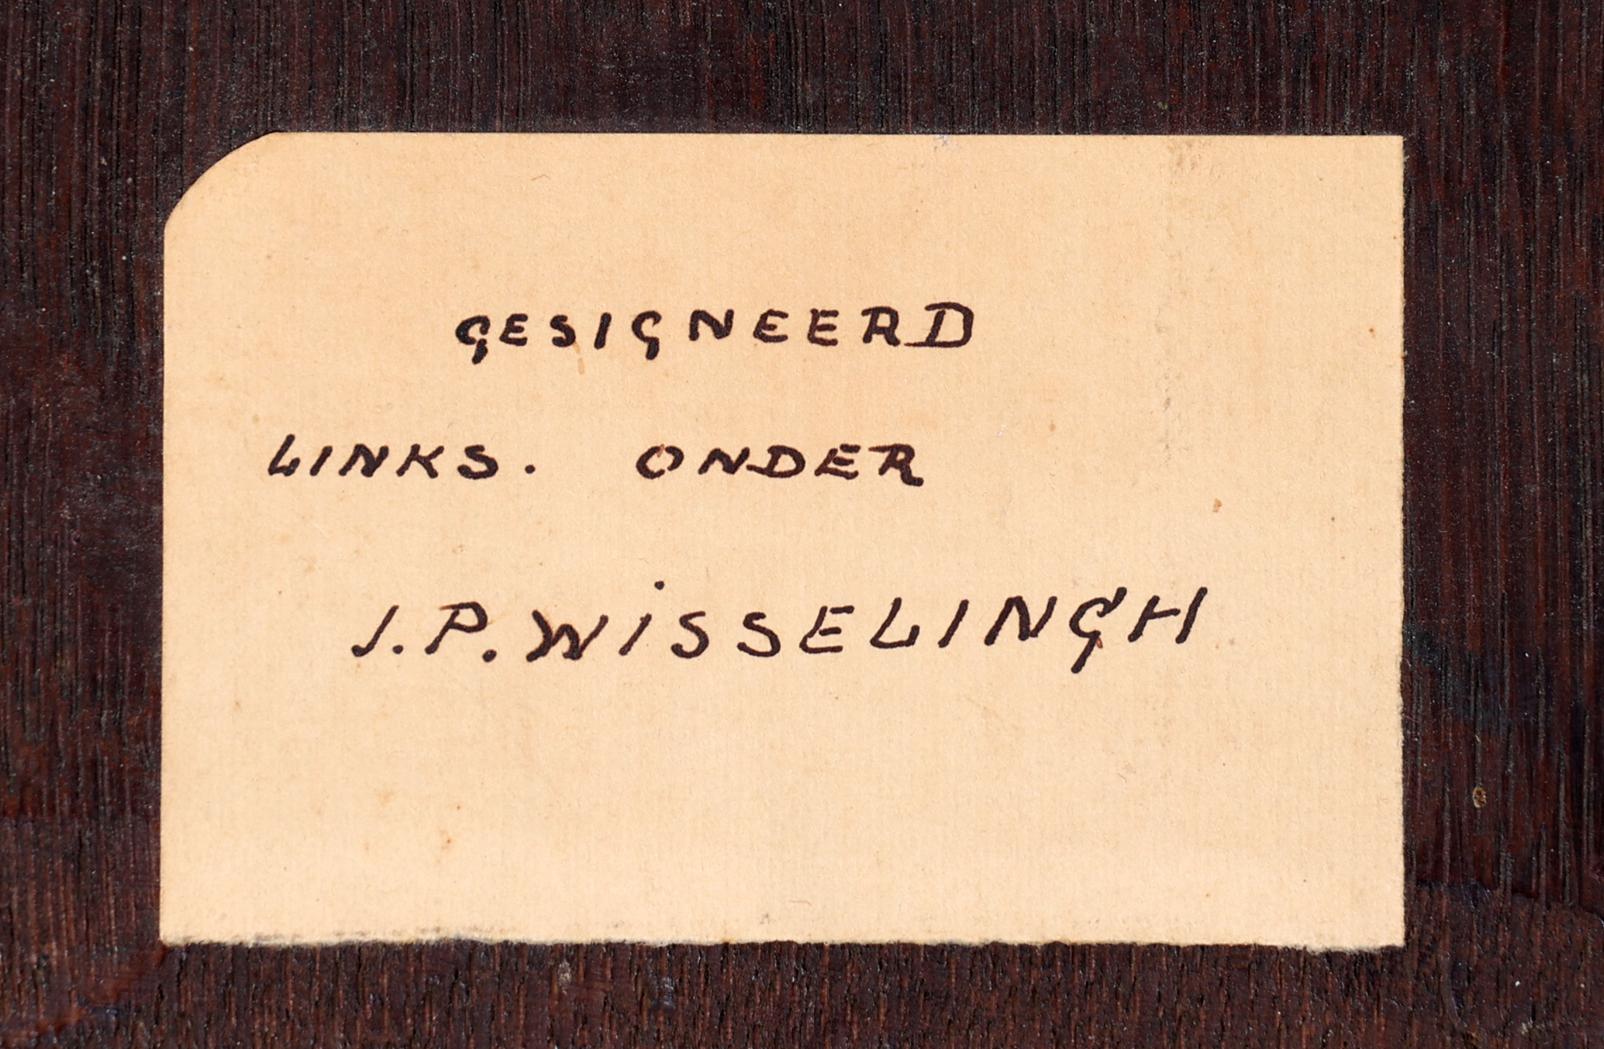 GESIGNEERD
LINKS. ONDER
J.P. WISSELINGH